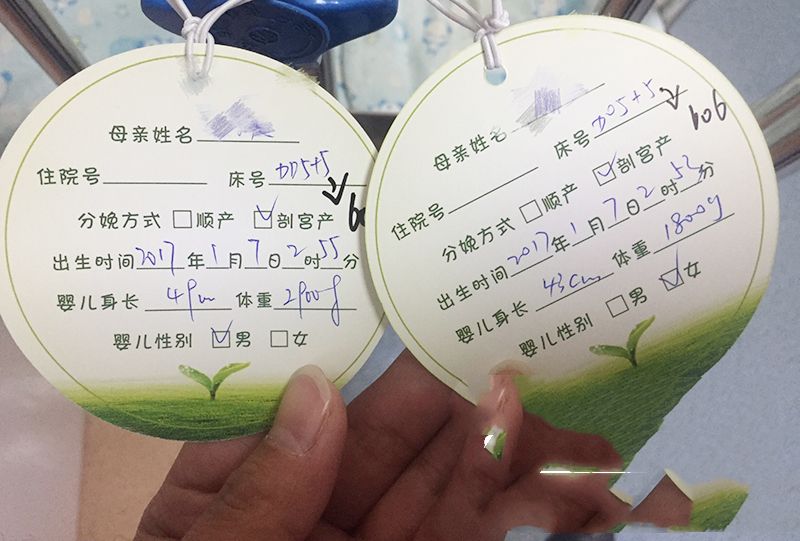 母亲姓名
住院号 床号 DD5+5
606
分娩方式 □顺产 ☑剖宫产
出生时间2017年1月7日2时55分
婴儿身长 49cm 体重 2900g
婴儿性别 ☑男 □女
母亲姓名
住院号 床号 DD5+5
606
分娩方式 □顺产 ☑剖宫产
出生时间2017年1月7日2时52分
婴儿身长 43cm 体重 1800g
婴儿性别 □男 ☑女